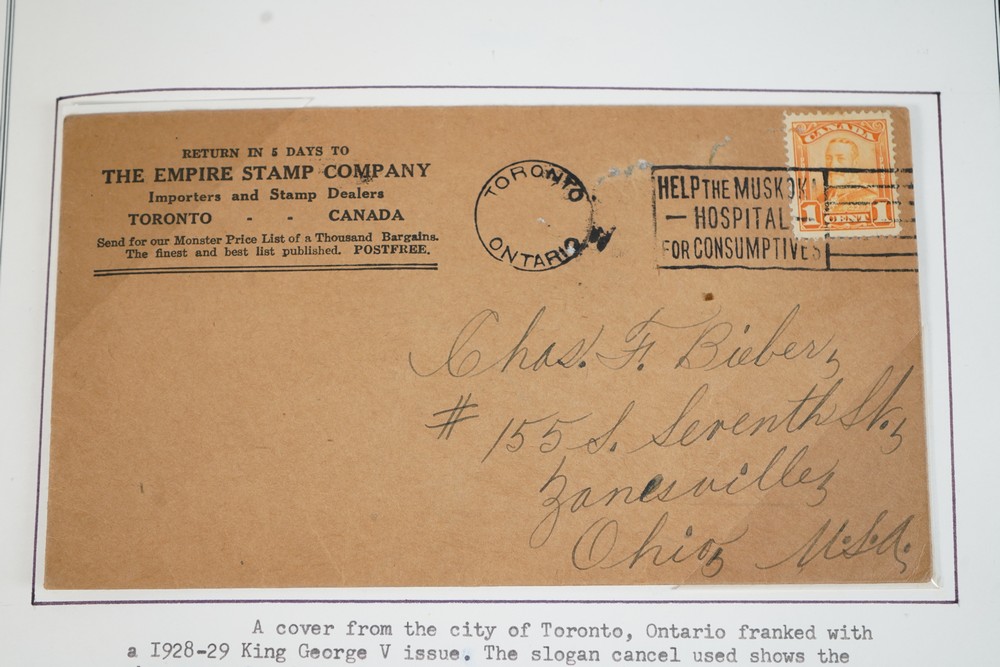 RETURN IN 5 DAYS TO
THE EMPIRE STAMP COMPANY
Importers and Stamp Dealers
TORONTO - - CANADA
Send for our Monster Price List of a Thousand Bargains.
The finest and best list published. POSTFREE.
TORONTO
ONTARIO
HELP THE MUSKOKA
— HOSPITAL
FOR CONSUMPTIVES
CANADA
1 CENT 1
Chas. F. Bieber,
# 155 S. Seventh St.,
Zanesville,
Ohio, U.S.A.
A cover from the city of Toronto, Ontario franked with
a 1928-29 King George V issue. The slogan cancel used shows the